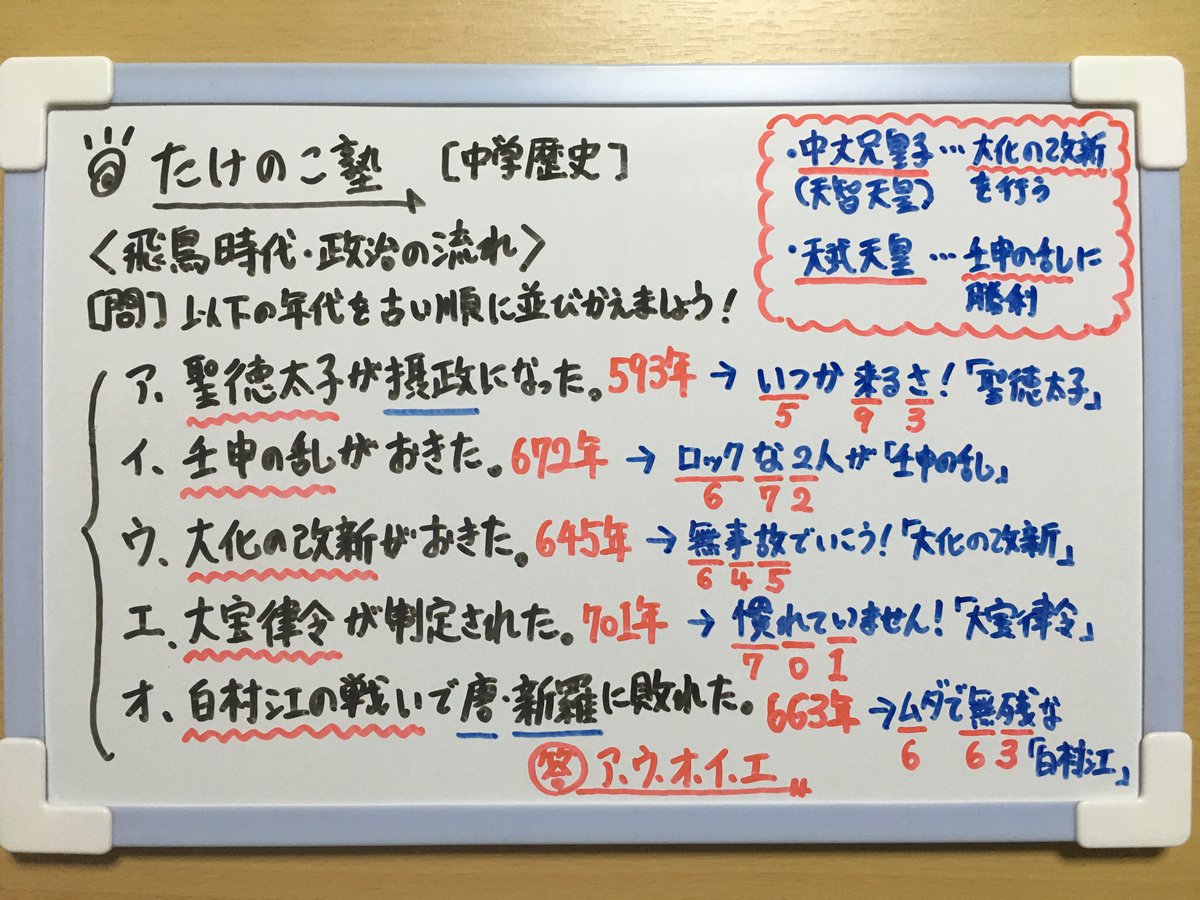 たけのこ塾 [中学歴史]
・中大兄皇子… 大化の改新
(天智天皇) を行う
・天武天皇 … 壬申の乱に
勝利
〈飛鳥時代・政治の流れ〉
[問] 以下の年代を古い順に並びかえましょう!
ア、聖徳太子が摂政になった。593年 → いつか 来るさ!「聖徳太子」
5 9 3
イ、壬申の乱がおきた。672年 → ロックな2人が「壬申の乱」
6 7 2
ウ、大化の改新がおきた。645年 → 無事故でいこう!「大化の改新」
6 4 5
エ、大宝律令が制定された。701年 → 慣れていません!「大宝律令」
7 0 1
オ、白村江の戦いで唐・新羅に敗れた。663年 → ムダで無残な
6 6 3「白村江」
答 ア、ウ、オ、イ、エ